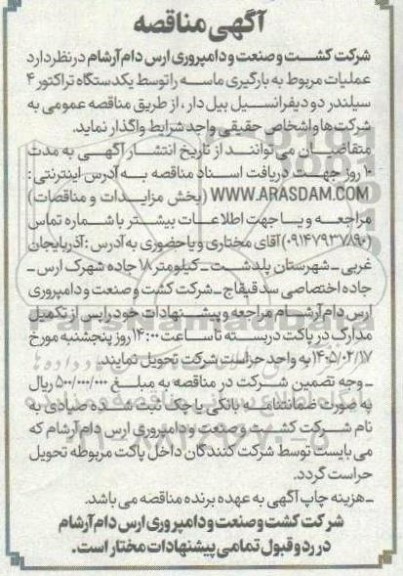 آگهی مناقصه
شرکت کشت و صنعت و دامپروری ارس دام آرشام در نظر دارد
عملیات مربوط به بارگیری ماسه را توسط یکدستگاه تراکتور ۴
سیلندر دو دیفرانسیل بیل دار، از طریق مناقصه عمومی به
شرکت‌ها و اشخاص حقیقی واجد شرایط واگذار نماید.
متقاضیان می‌توانند از تاریخ انتشار آگهی به مدت
۱۰ روز جهت دریافت اسناد مناقصه به آدرس اینترنتی:
WWW.ARASDAM.COM (بخش مزایدات و مناقصات)
مراجعه و یا جهت اطلاعات بیشتر با شماره تماس
(۰۹۱۴۷۹۳۷۸۹۰) آقای مختاری و یا حضوری به آدرس: آذربایجان
غربی ـ شهرستان پلدشت ـ کیلومتر ۱۸ جاده شهرک ارس ـ
جاده اختصاصی سد قیقاج ـ شرکت کشت و صنعت و دامپروری
ارس دام آرشام مراجعه و پیشنهادات خود را پس از تکمیل
مدارک در پاکت دربسته تا ساعت ۱۴:۰۰ روز پنجشنبه مورخ
۱۴۰۵/۰۲/۱۷ به واحد حراست شرکت تحویل نمایند.
ـ وجه تضمین شرکت در مناقصه به مبلغ ۵۰۰/۰۰۰/۰۰۰ ریال
به صورت ضمانتنامه بانکی یا چک ثبت شده صیادی به
نام شرکت کشت و صنعت و دامپروری ارس دام آرشام که
می بایست توسط شرکت کنندگان داخل پاکت مربوطه تحویل
حراست گردد.
ـ هزینه چاپ آگهی به عهده برنده مناقصه می باشد.
شرکت کشت و صنعت و دامپروری ارس دام آرشام
در رد و قبول تمامی پیشنهادات مختار است.